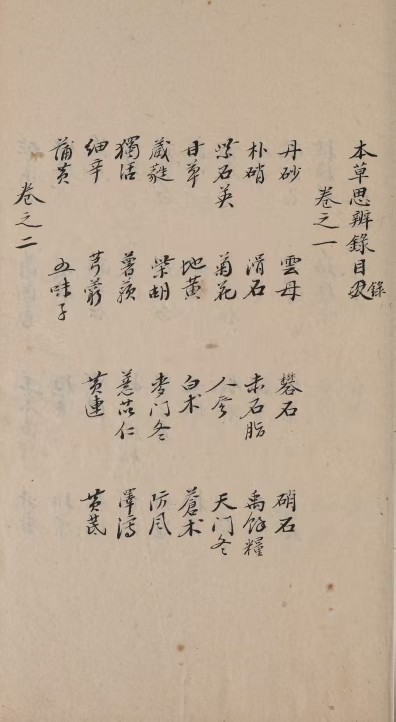 本草思辨錄目錄
卷之一
丹砂 雲母 礬石 硝石
朴硝 滑石 赤石脂 禹餘糧
紫石英 菊花 人參 天门冬
甘草 地黃 白术 蒼术
葳蕤 柴胡 麥门冬 防風
獨活 薯蕷 薏苡仁 澤瀉
細辛 芎藭 黃連 黃芪
蒲黃 五味子
卷之二